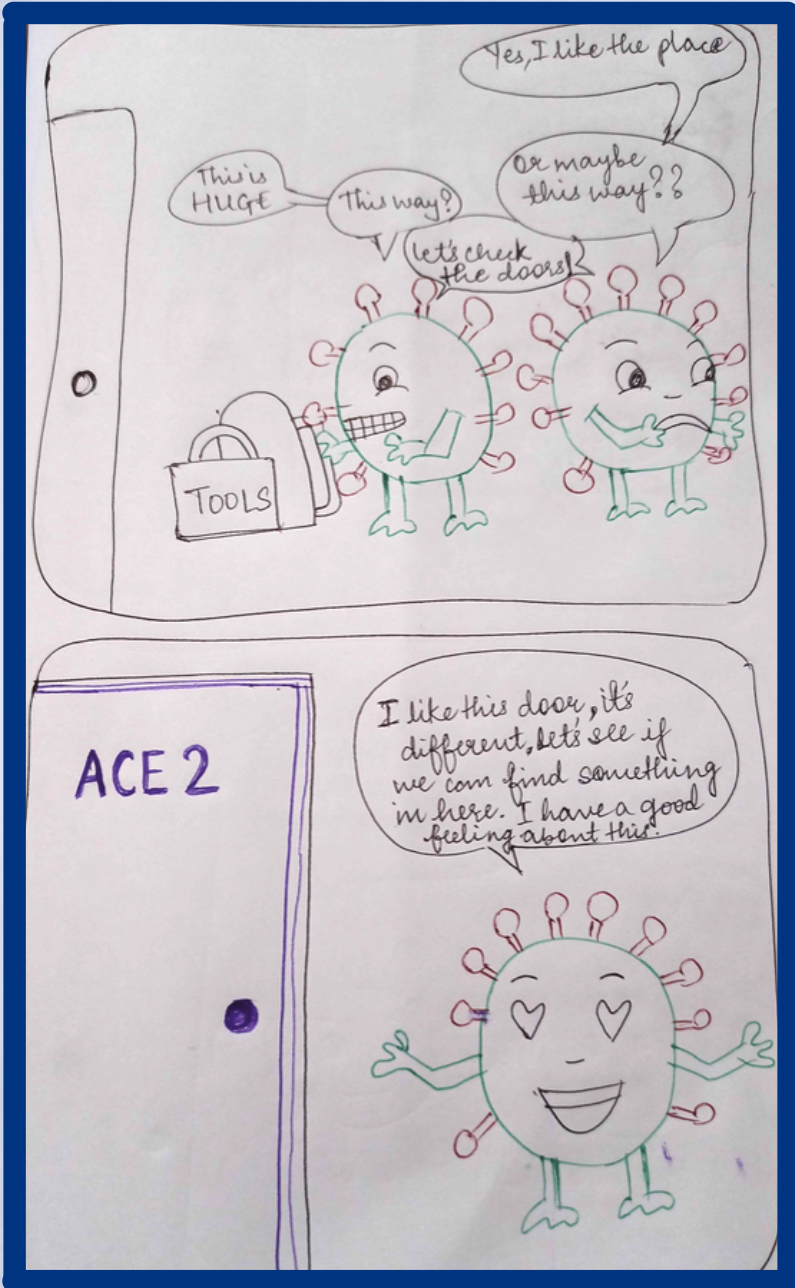 Yes, I like the place
This is
HUGE
This way?
Or maybe
this way??
Let's check
the doors!
TOOLS
I like this door, it's
different, let's see if
we can find something
in here. I have a good
feeling about this.
ACE 2